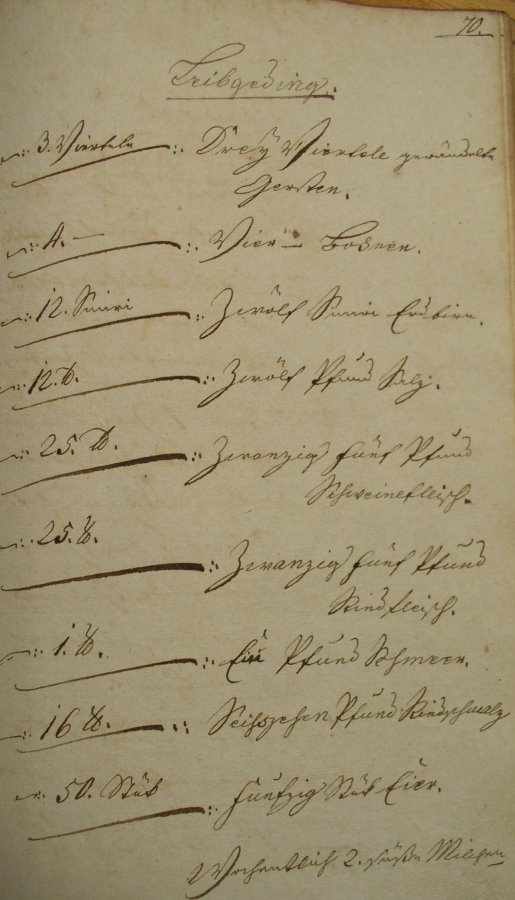 70.
Leibgeding.
3. Viertele Drey Viertele gerändelte
Gersten.
4. — Vier — Bohnen.
12. Simri Zwölf Simri Erdbirn.
12. ℔. Zwölf Pfund Salz.
25. ℔. Zwanzig fünf Pfund
Schweinefleisch.
25. ℔. Zwanzig fünf Pfund
Rindfleisch.
1. ℔. Ein Pfund Schmeer.
16 ℔. Sechszehen Pfund Rindschmalz
50. Stük funfzig Stük Eier.
Wochentlich 2. süße Milchen